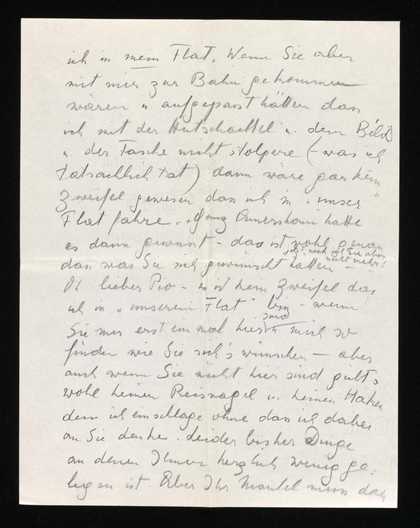 ich in mein Flat. Wenn Sie aber
mit mir zur Bahn gekommen
wären u aufgepasst hätten dass
ich mit der Hutschachtel u. dem Bild
u der Tasche nicht stolpere (– was ich
tatsächlich tat) dann wäre gar kein
Zweifel gewesen dass ich in "unser"
Flat fahre. Ganz hätte
es dann gewusst – das ist wohl genau
das was Sie sich gewünscht hätten
lieber – es ist kein Zweifel dass
ich in "unserem Flat" bin – wenn
Sie nur erst einmal hier sind u mich so
finden wie Sie sich's wünschen – aber
auch wenn Sie nicht hier sind gibt's
wohl keinen Reissnagel u. keinen Haken
den ich einschlage ohne dass ich dabei
an Sie denke. leider bisher Dinge
an denen Ihnen herzlich wenig ge-
legen ist. Aber Ihr Mantel muss doch